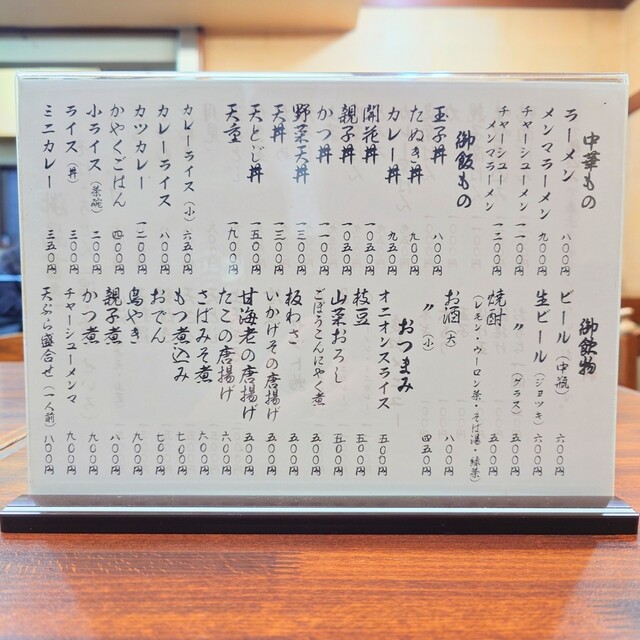 中華もの
ラーメン 八〇〇円
メンマラーメン 九〇〇円
チャーシューメン 一一〇〇円
チャーシューメンマラーメン 一二〇〇円
御飯もの
玉子丼 八〇〇円
たぬき丼 九〇〇円
カレー丼 九五〇円
開花丼 一〇五〇円
親子丼 一〇五〇円
かつ丼 一一〇〇円
野菜天丼 一三〇〇円
天丼 一三〇〇円
天とじ丼 一五〇〇円
天重 一九〇〇円
カレーライス（小） 六五〇円
カレーライス 八〇〇円
カツカレー 一二〇〇円
かやくごはん 四〇〇円
小ライス（茶碗） 二〇〇円
ライス（丼） 三〇〇円
ミニカレー 三五〇円
御飲物
ビール（中瓶） 六〇〇円
生ビール（ジョッキ） 六〇〇円
〃（グラス） 五〇〇円
焼酎 五〇〇円
（レモン・ウーロン茶・そば湯・緑茶）
お酒（大） 八〇〇円
〃（小） 四五〇円
おつまみ
オニオンスライス 五〇〇円
枝豆 五〇〇円
山菜おろし 五〇〇円
ごぼうこんにゃく煮 五〇〇円
板わさ 五〇〇円
いかげその唐揚げ 五〇〇円
甘海老の唐揚げ 五〇〇円
たこの唐揚げ 六〇〇円
さばみそ煮 六〇〇円
もつ煮込み 七〇〇円
おでん 七〇〇円
鳥やき 九〇〇円
親子煮 八〇〇円
かつ煮 九〇〇円
チャーシューメンマ 九〇〇円
天ぷら盛合せ（一人前） 八〇〇円